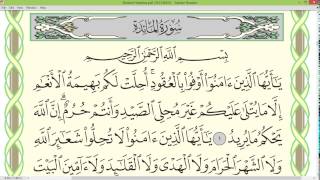 سُورَةُ المَائِدَةِ
بِسْمِ اللَّهِ الرَّحْمَٰنِ الرَّحِيمِ
يَا أَيُّهَا الَّذِينَ ءَامَنُوا أَوْفُوا بِالْعُقُودِ أُحِلَّتْ لَكُم بَهِيمَةُ الْأَنْعَامِ
إِلَّا مَا يُتْلَىٰ عَلَيْكُمْ غَيْرَ مُحِلِّي الصَّيْدِ وَأَنتُمْ حُرُمٌ إِنَّ اللَّهَ
يَحْكُمُ مَا يُرِيدُ ١ يَا أَيُّهَا الَّذِينَ ءَامَنُوا لَا تُحِلُّوا شَعَائِرَ اللَّهِ
وَلَا الشَّهْرَ الْحَرَامَ وَلَا الْهَدْيَ وَلَا الْقَلَائِدَ وَلَا ءَامِّينَ الْبَيْتَ